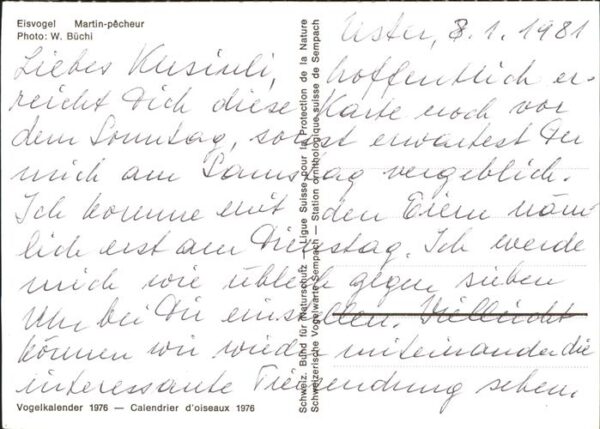 Eisvogel Martin-pêcheur
Photo: W. Büchi
Uster, 8.1.1981
Liebes Kusinli, hoffentlich er-
reicht Dich diese Karte noch vor
dem Sonntag, sonst erwartest Du
mich am Samstag vergeblich.
Ich komme mit den Eiern näm-
lich erst am Dienstag. Ich werde
mich wie üblich gegen sieben
Uhr bei Dir einstellen. Vielleicht
können wir wieder miteinander die
interessante Tiersendung sehen.
Vogelkalender 1976 — Calendrier d'oiseaux 1976
Schweiz. Bund für Naturschutz — Ligue Suisse pour la Protection de la Nature
Schweizerische Vogelwarte Sempach — Station ornithologique suisse de Sempach